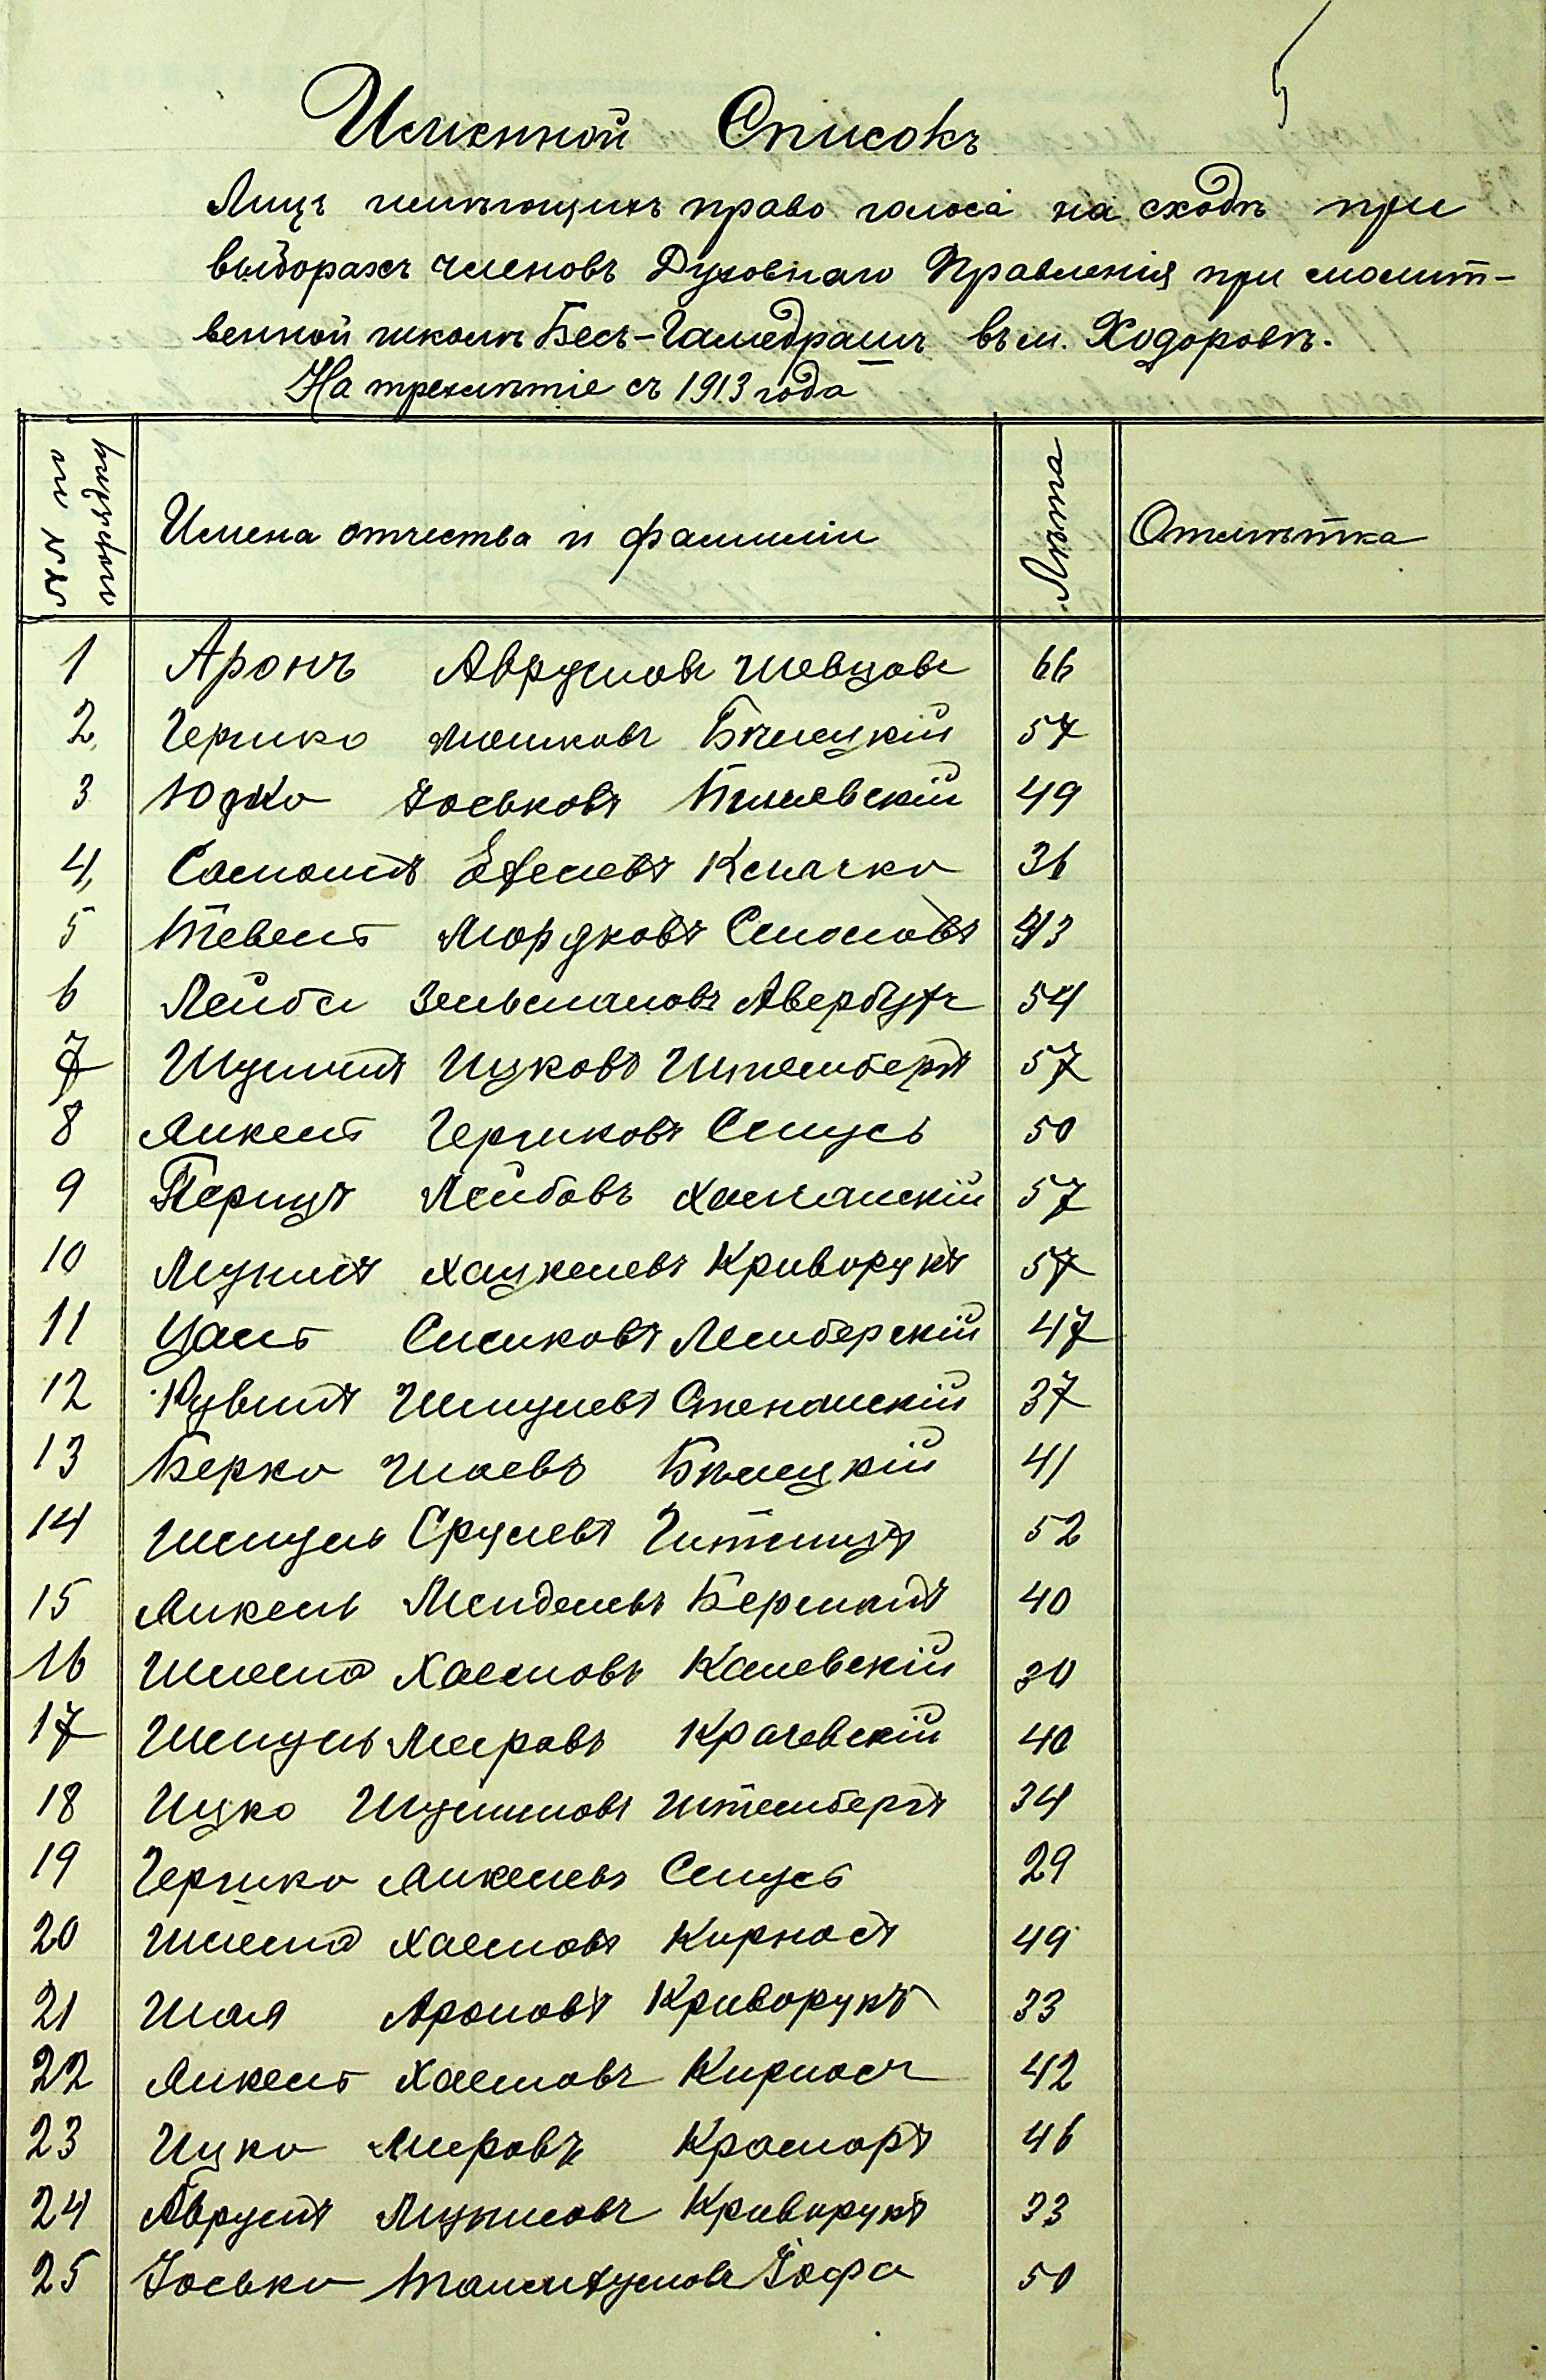 5
Именной Списокъ
Лицъ имѣющихъ право голоса на сходѣ при
выборахъ членовъ Духовнаго Правленія при молит-
венной школѣ Бесъ-Гамедрашъ въ м. Ходоровѣ.
На трехлѣтіе съ 1913 года
№№ по порядку Имена отчества и фамиліи Лѣта Отмѣтка
1 Аронъ Аврумовъ Шевцовъ 66
2 Гершко Мошковъ Бѣлецкій 57
3 Юдко Іоськовъ 49
4 Соломонъ Клячко 36
5 Тевель Мордковъ Смоловъ 43
6 Лейба Зельмановъ Авербухъ 54
7 Шулимъ Ицковъ Штембергъ 57
8 Янкель Гершковъ Смусь 50
9 Перецъ Лейбовъ 57
10 Мунишъ Хацкелевъ Криворукъ 57
11 Цаль Симковъ Лемберскій 47
12 Рувинъ Шмулевъ Степанскій 37
13 Берко Шаевъ Бѣлецкій 41
14 Шмуль Срулевъ 52
15 Янкель Менделевъ 40
16 Шлема Хаимовъ Каневскій 30
17 Шмуль Меировъ Крачевскій 40
18 Ицко Шулимовъ Штембергъ 34
19 Гершко Янкелевъ Смусь 29
20 Шлема Хаимовъ Кирносъ 49
21 Шая Ароновъ Криворукъ 33
22 Янкель Хаимовъ Кирносъ 42
23 Ицко Меировъ 46
24 Аврумъ Мунишовъ Криворукъ 33
25 Іосько Танхумовъ Іофа 50